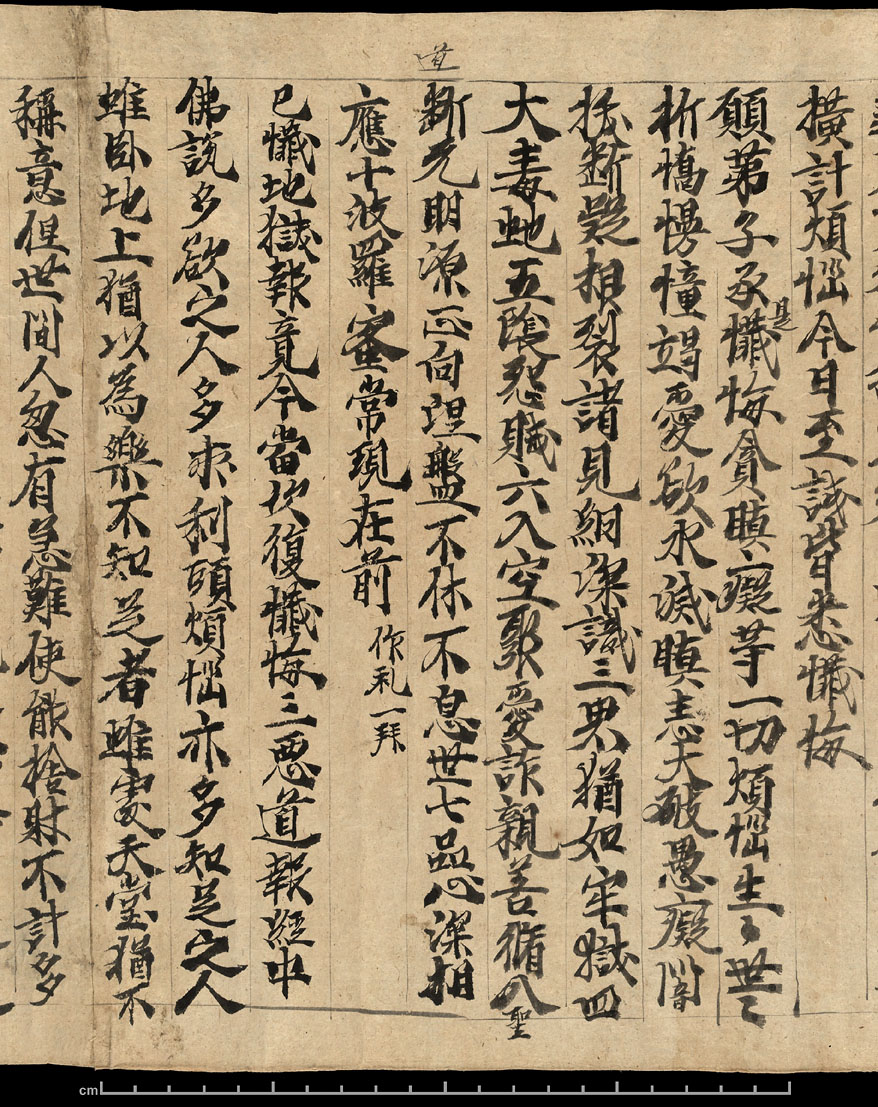 橫計煩惱今日至誠皆悉懺悔
願弟子承是懺悔貪瞋癡等一切煩惱生〻世〻
折憍慢幢竭愛欲水滅瞋恚火破愚癡闇
拔斷疑根裂諸見網深識三界猶如牢獄四
大毒虵五陰怨賊六入空聚愛詐親善脩八聖
道
斷无明源正向涅盤不休不息卅七品心深相
應十波羅蜜常現在前 作礼一拜
已懺地獄報竟今當次復懺悔三惡道報經中
佛說多欲之人多求利故煩惱亦多知足之人
雖臥地上猶以為樂不知足者雖處天堂猶不
稱意但世間人忽有急難使能捨財不計多